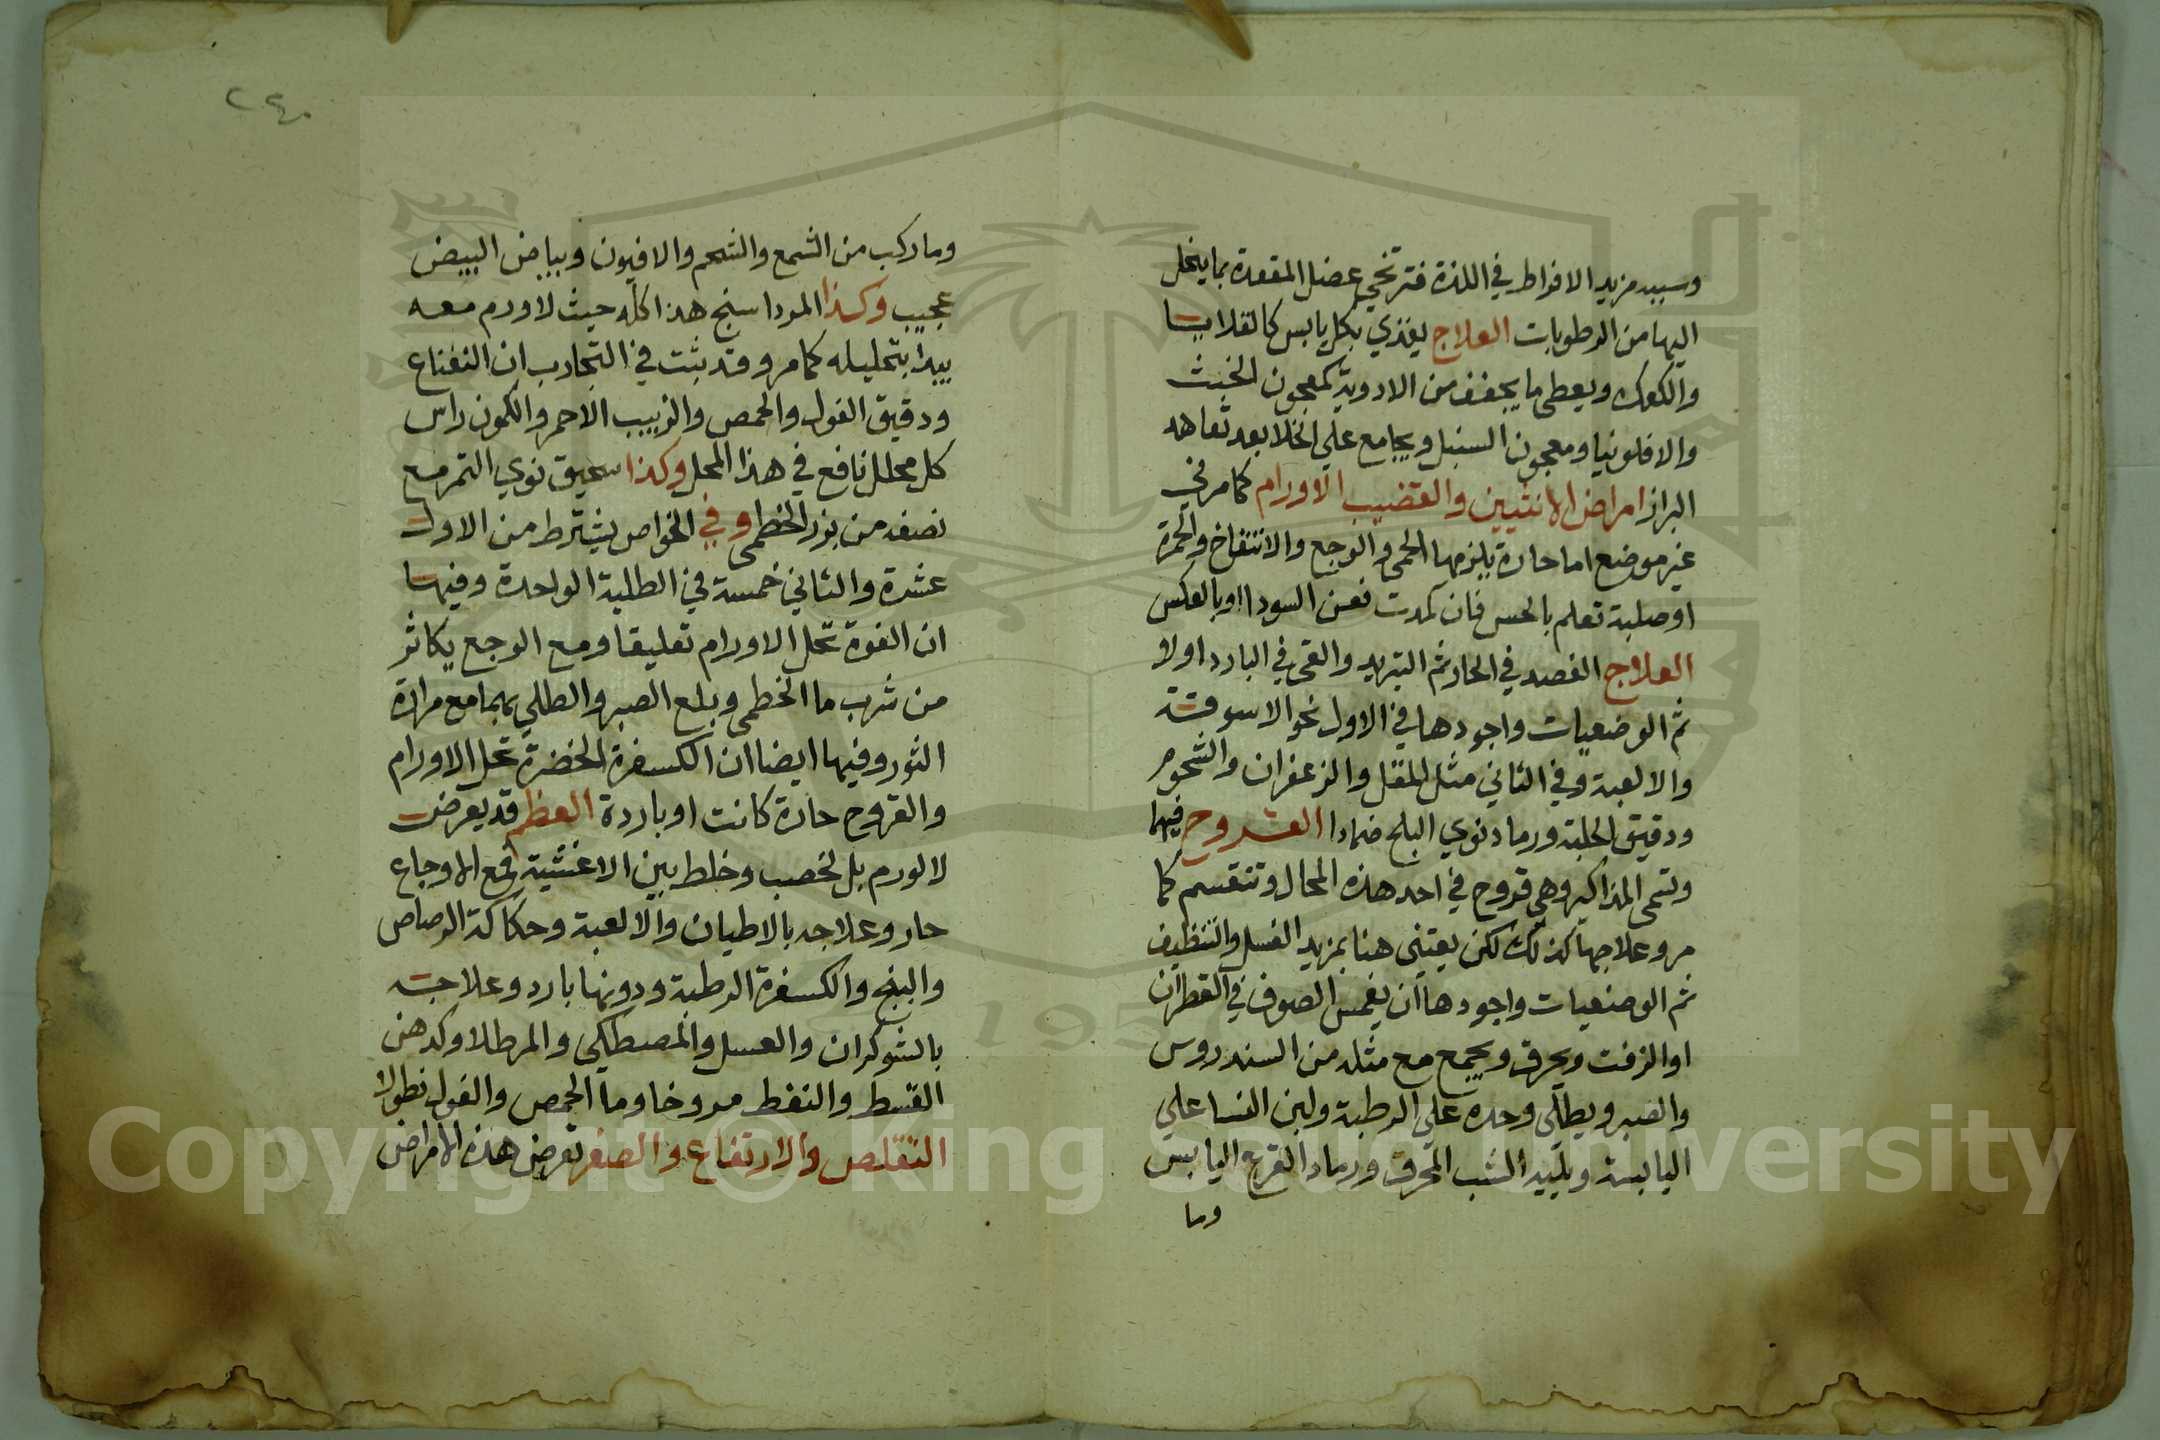 وسببه مزيد الافراط في اللذة فترتخي عضل المقعدة بما ينحل
اليها من الرطوبات العلاج يغذي بكل يابس كالقلايا
والكعك ويعطى ما يجفف من الادوية كمعجون الخبث
والافلونيا ومعجون السنبل ويجامع علي الخلا بعد تعاهد
البراز امراض الانثيين والقضيب الاورام كما مر في
غير موضع اما حارة يلزمها الحمى والوجع والانتفاخ والحمرة
او صلبة تعلم بالحس فان كمدت فعن السودا او بالعكس
العلاج الفصد في الحار ثم التبريد والقي في البارد اولا
ثم الوضعيات واجودها في الاول نحو الاسوقة
والالعبة وفي الثاني مثل المقل والزعفران والشحوم
ودقيق الحلبة ورماد نوي البلح ضمادا القروح فيهما
وتسمى المذاكير وهي قروح في احد هذه المحال وتنقسم كما
مر وعلاجها كذلك لكن يعتنى هنا بمزيد الغسل والتنظيف
ثم الوضعيات واجودها ان يغمس الصوف في القطران
او الزفت ويحرق ويجمع مع مثله من السندروس
والصبر ويطلى وحده علي الرطبة ولبن النسا علي
اليابسة ويليه الشب المحرق ورماد القرع اليابس
وما
٢٤٠
وما ركب من الشمع والشحم والافيون وبياض البيض
عجيب وكذا المرداسنج هذا كله حيث لا ورم معه
يبدا بتحليله كما مر وقد ثبت في التجارب ان النعناع
ودقيق الفول والحمص والزبيب الاحمر والكمون راس
كل محلل نافع في هذا المحل وكذا سحيق نوي التمر مع
نصفه من بزر الخطمى وفي الخواص يشترط من الاول
عشرة والثاني خمسة في الطلية الواحدة وفيها
ان الفوة تحل الاورام تعليقا ومع الوجع يكاثر
من شرب ما الخطمى وبلع الصبر والطلي بمجامع مرارة
الثور وفيها ايضا ان الكسفرة الخضرة تحل الاورام
والقروح حارة كانت او باردة العظم قد يعرض
لا لورم بل لخصب وخلط بين الاغشية فمع الاوجاع
حار وعلاجه بالاطيان والالعبة وحكاكة الرصاص
والبنج والكسفرة الرطبة ودونها بارد وعلاجه
بالشوكران والعسل والمصطكي والمر طلا وكدهن
القسط والنفط مروخا وما الحمص والفول نطولا
التقلص والارتفاع والصغر تعرض هذه الامراض
Copyright © King Saud University
195